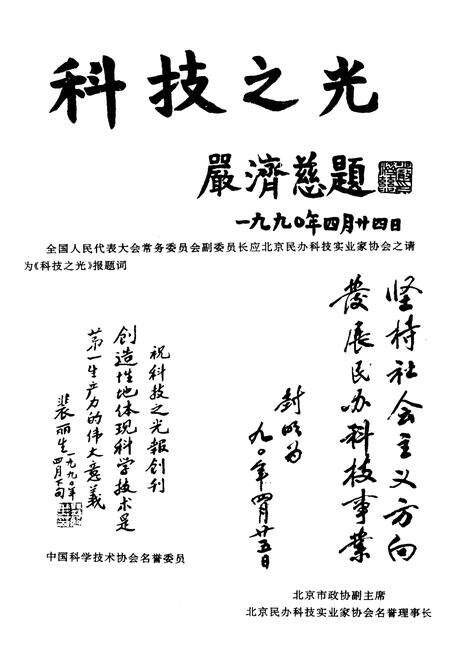 科技之光
嚴濟慈題
一九九〇年四月廿四日
全国人民代表大会常务委员会副委员长应北京民办科技实业家协会之请
为《科技之光》报题词
坚持社会主义方向
发展民办科技事业
封明为
九〇年四月廿五日
北京市政协副主席
北京民办科技实业家协会名誉理事长
祝科技之光報创刊
创造性地体现科学技术是
第一生产力的伟大意義
裴丽生一九九〇年
四月下旬
中国科学技术协会名誉委员